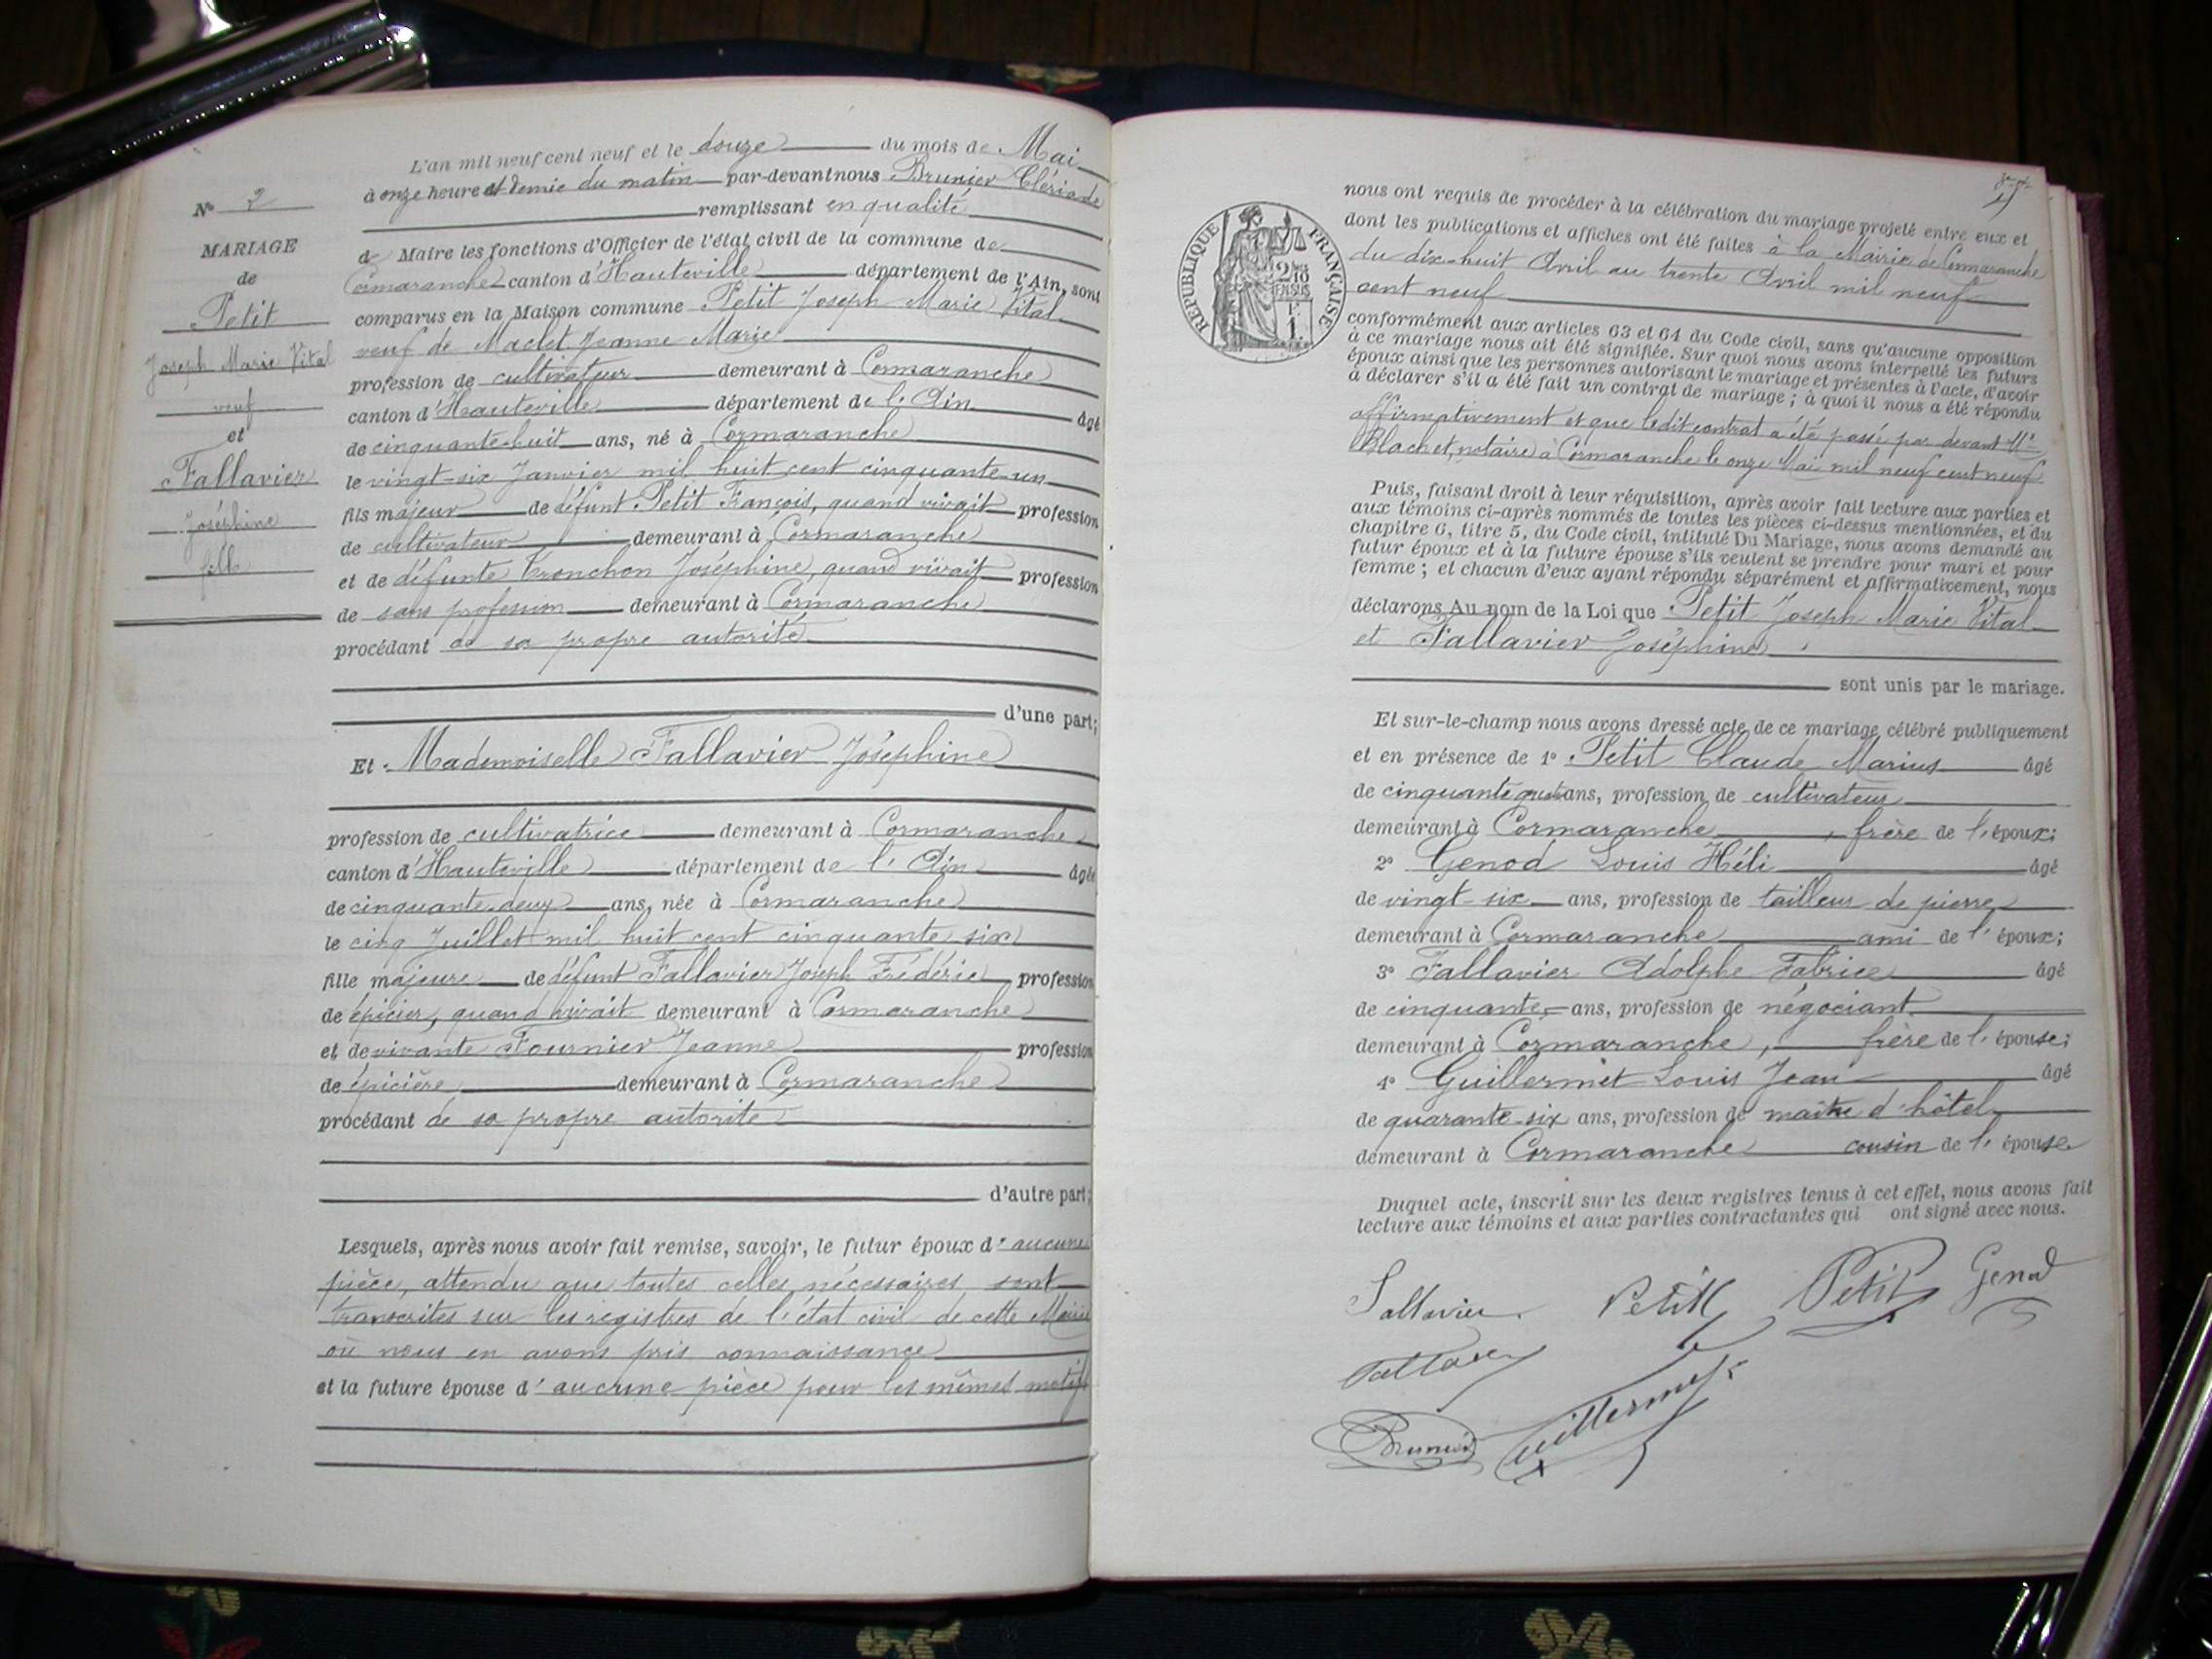 L'an mil neuf cent neuf et le douze du mois de Mai
à onze heure et demie du matin par-devant nous Brunier Clériade
remplissant en qualité
de Maire les fonctions d'Officier de l'état civil de la commune de
Cormaranche canton d'Hauteville département de l'Ain, sont
comparus en la Maison commune Petit Joseph Marie Vital
veuf de Maclet Jeanne Marie
profession de cultivateur demeurant à Cormaranche
canton d'Hauteville département de l'Ain âgé
de cinquante-huit ans, né à Cormaranche
le vingt-six Janvier mil huit cent cinquante-un
fils majeur de défunt Petit François, quand vivait profession
de cultivateur demeurant à Cormaranche
et de défunte Tronchon Joséphine, quand vivait profession
de sans profession demeurant à Cormaranche
procédant de sa propre autorité
d'une part;
Et Mademoiselle Fallavier Joséphine
profession de cultivatrice demeurant à Cormaranche
canton d'Hauteville département de l'Ain âgée
de cinquante-deux ans, née à Cormaranche
le cinq Juillet mil huit cent cinquante six
fille majeure de défunt Fallavier Joseph Frédéric profession
de épicier, quand vivait demeurant à Cormaranche
et de vivante Fournier Jeanne profession
de épicière demeurant à Cormaranche
procédant de sa propre autorité
d'autre part;
Lesquels, après nous avoir fait remise, savoir, le futur époux d'aucune
pièce, attendu que toutes celles nécessaires sont
transcrites sur les registres de l'état civil de cette Mairie
où nous en avons pris connaissance
et la future épouse d'aucune pièce pour les mêmes motifs
N° 2
MARIAGE
de
Petit
Joseph Marie Vital
veuf
et
Fallavier
Joséphine
fille
RÉPUBLIQUE FRANÇAISE
2/10
EN SUS
1 F.
nous ont requis de procéder à la célébration du mariage projeté entre eux et
dont les publications et affiches ont été faites à la Mairie de Cormaranche
du dix-huit Avril au trente Avril mil neuf
cent neuf
conformément aux articles 63 et 64 du Code civil, sans qu'aucune opposition
à ce mariage nous ait été signifiée. Sur quoi nous avons interpellé les futurs
époux ainsi que les personnes autorisant le mariage et présentes à l'acte, d'avoir
à déclarer s'il a été fait un contrat de mariage; à quoi il nous a été répondu
affirmativement et que ledit contrat a été passé par devant Me
Blachet, notaire à Cormaranche le onze Mai mil neuf cent neuf
Puis, faisant droit à leur réquisition, après avoir fait lecture aux parties et
aux témoins ci-après nommés de toutes les pièces ci-dessus mentionnées, et du
chapitre 6, titre 5, du Code civil, intitulé Du Mariage, nous avons demandé au
futur époux et à la future épouse s'ils veulent se prendre pour mari et pour
femme; et chacun d'eux ayant répondu séparément et affirmativement, nous
déclarons Au nom de la Loi que Petit Joseph Marie Vital
et Fallavier Joséphine
sont unis par le mariage.
Et sur-le-champ nous avons dressé acte de ce mariage célébré publiquement
et en présence de 1° Petit Claude Marius âgé
de cinquante quatre ans, profession de cultivateur
demeurant à Cormaranche, frère de l'époux;
2° Genod Louis Héli âgé
de vingt-six ans, profession de tailleur de pierre
demeurant à Cormaranche ami de l'époux;
3° Fallavier Adolphe Fabrice âgé
de cinquante ans, profession de négociant
demeurant à Cormaranche, frère de l'épouse;
4° Guillermet Louis Jean âgé
de quarante-six ans, profession de maître d'hôtel
demeurant à Cormaranche cousin de l'épouse
Duquel acte, inscrit sur les deux registres tenus à cet effet, nous avons fait
lecture aux témoins et aux parties contractantes qui ont signé avec nous.
Fallavier Petit Petit Genod
Brunier Guillermet